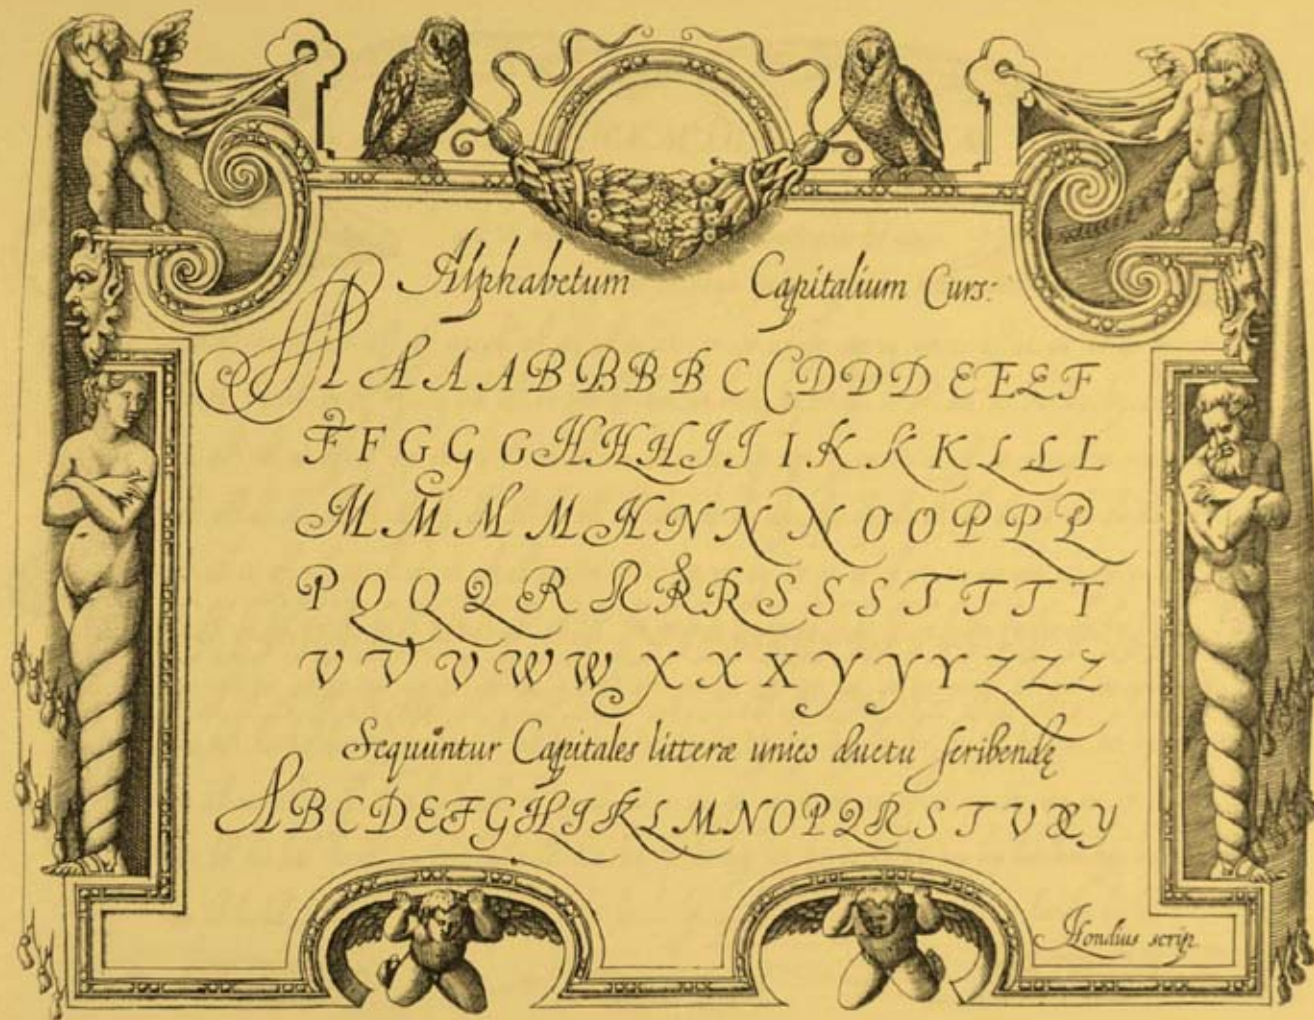 Alphabetum Capitalium Curs:
A A A A B B B B C C D D D E E E F
F F G G G H H H I I I K K K L L L
M M M M N N N N O O P P P
P Q Q Q R R R R S S S T T T T
V V V W W X X X Y Y Y Z Z Z
Sequuntur Capitales litteræ unico ductu ſcribendę
A B C D E F G H I K L M N O P Q R S T V X Y
Hondius scrip.